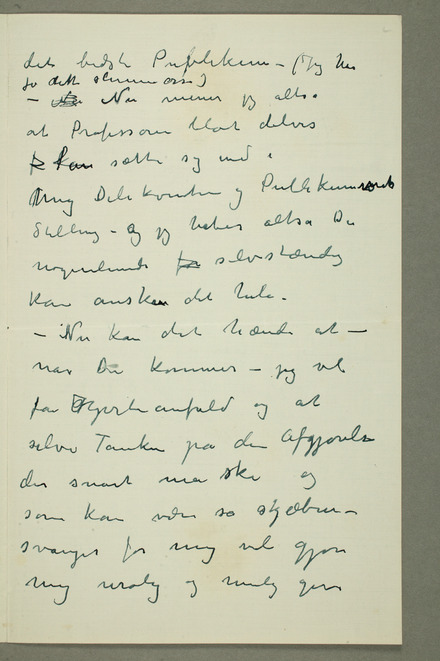 det bedste Publikum – (Jeg har
jo dette slemme ogsaa)
– Nu mener jeg altsaa
at Professoren blot delvis
kan sætte sig ind i
mig Delikventen og Publikummets
Stilling – og jeg haaber altsaa De
nogenlunde selvstændig
kan anskue det hele.
– Nu kan det hænde at –
naar De kommer – jeg vil
faa Hjerteanfald og at
selve Tanken paa den Afgjørelse
der snart maa ske og
som kan være saa skjæbne-
svanger for mig vil gjøre
mig urolig og mulig gøre